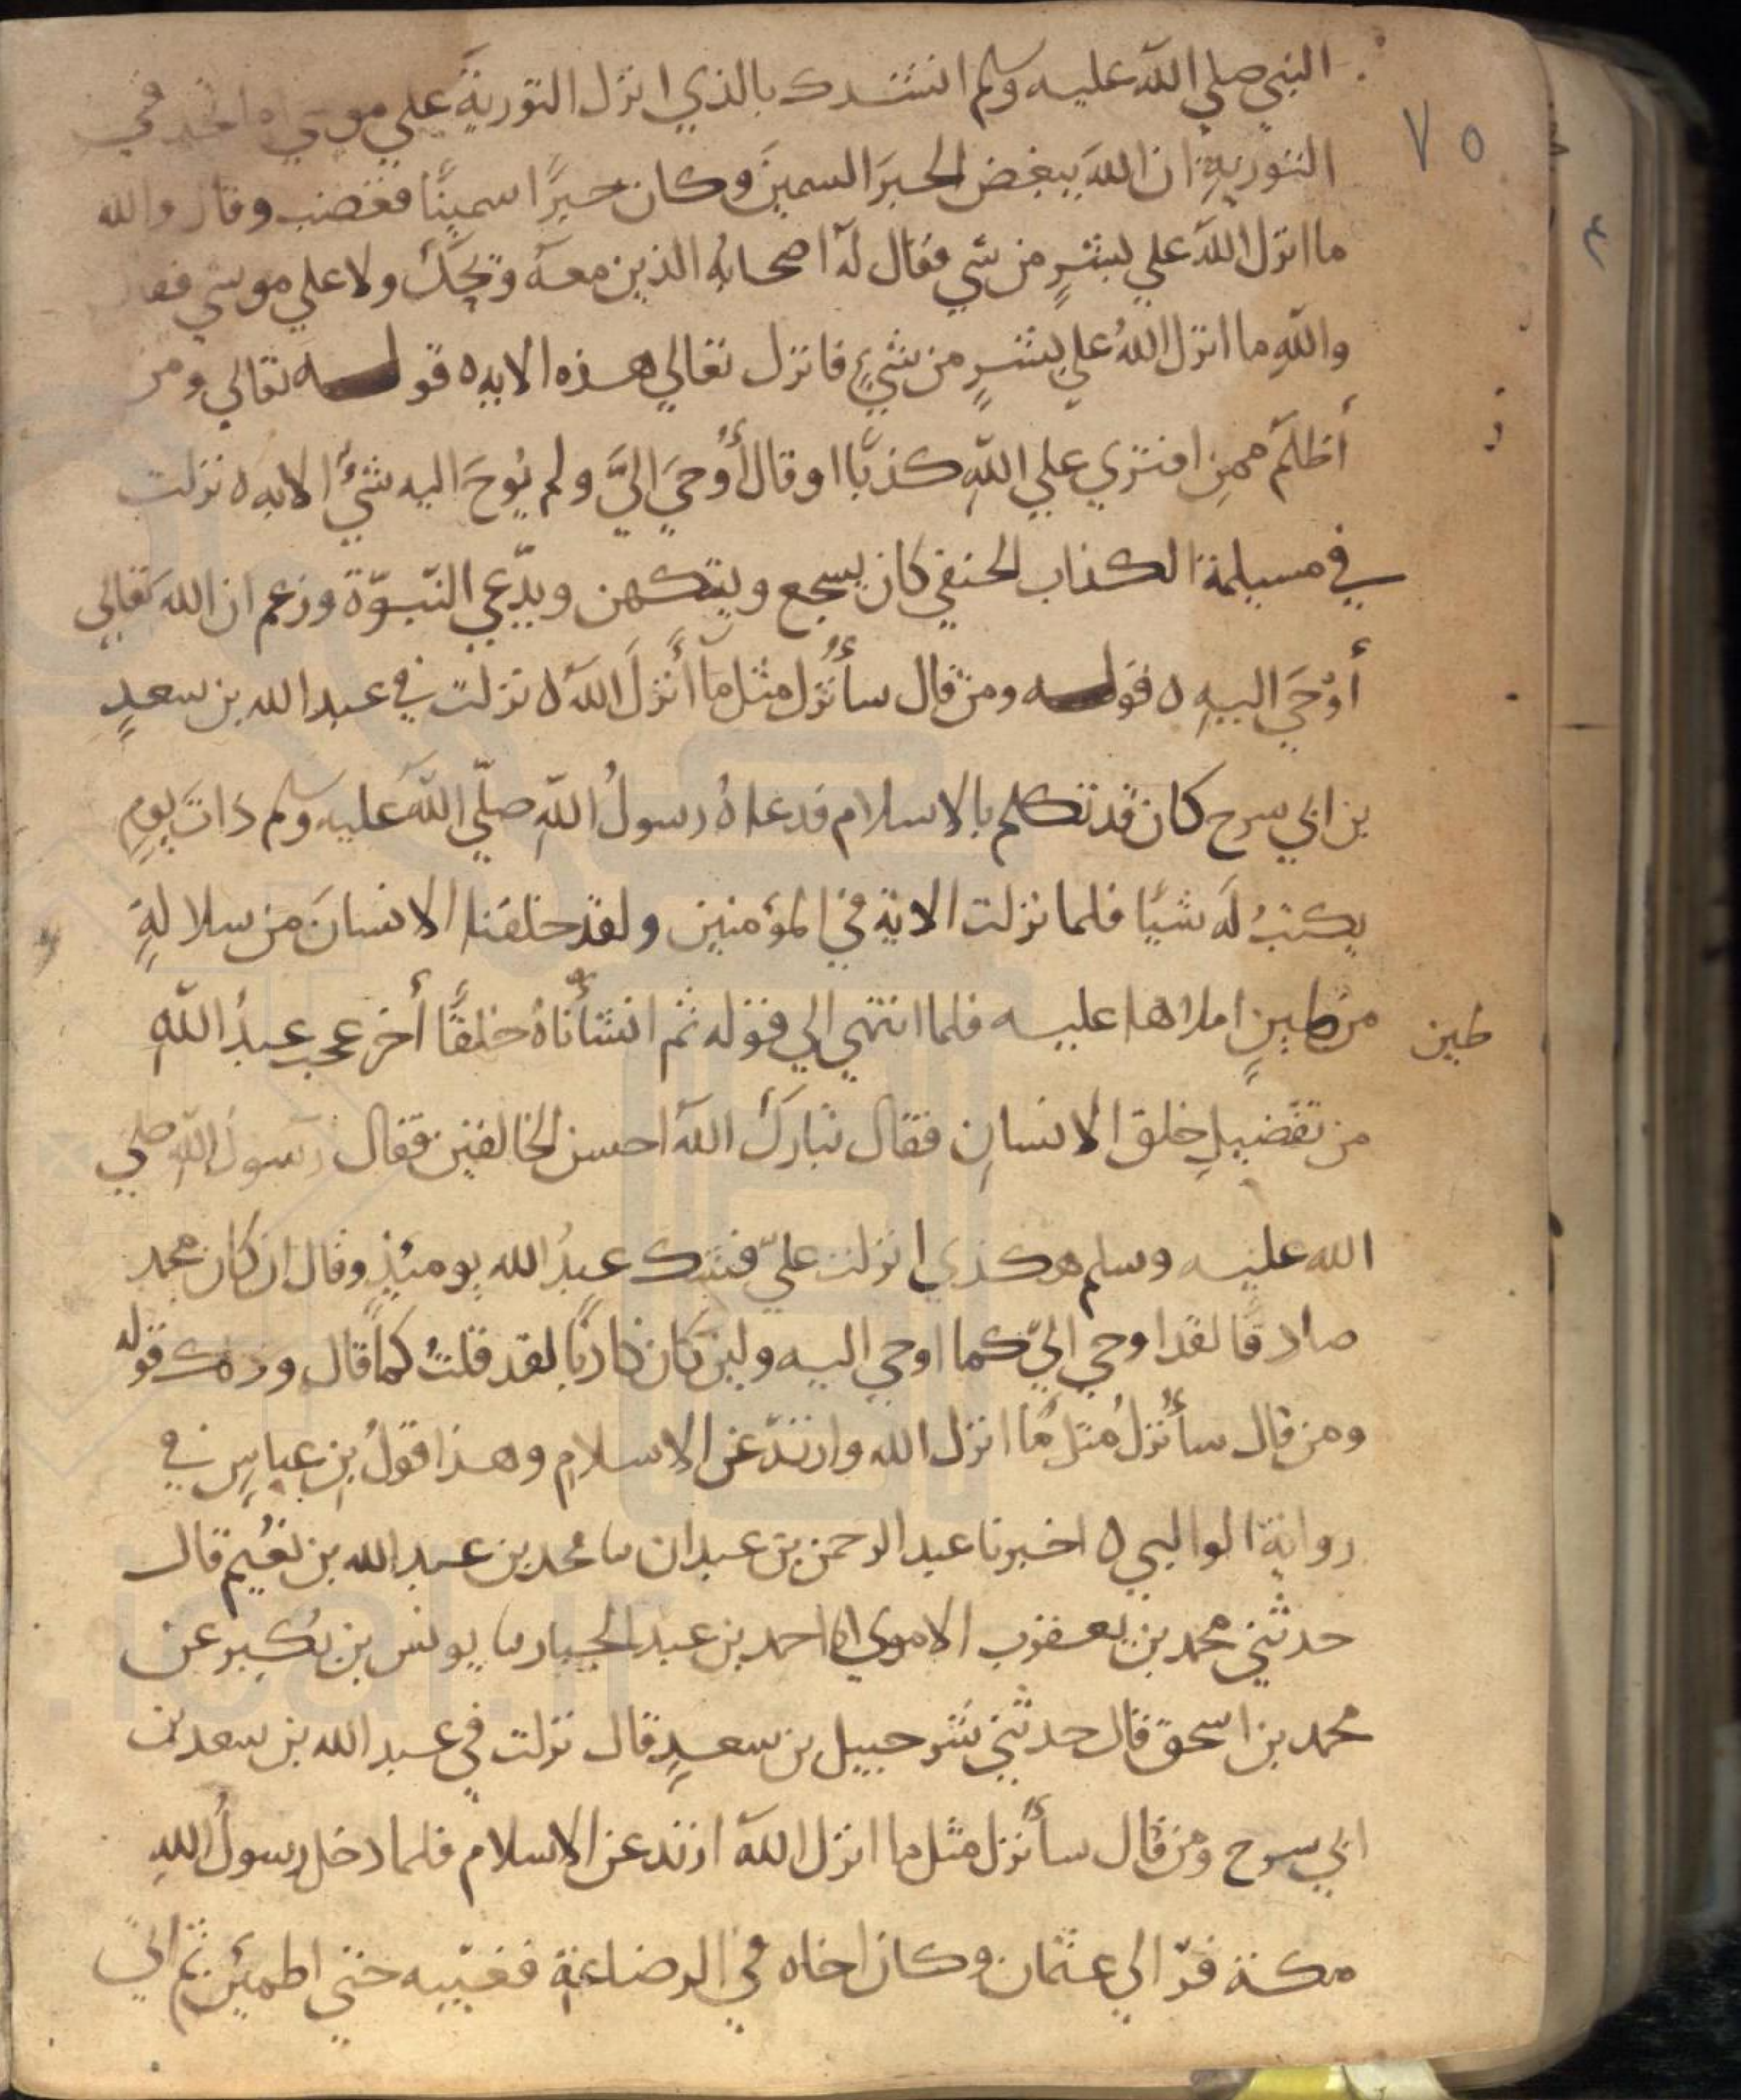 النبي صلي الله عليه وسلم انشدك بالذي انزل التورية علي موسي اما تجد في
٧٥
التورية ان الله يبغض الحبر السمين وكان حبرًا سمينًا فغضب وقال والله
ما انزل الله علي بشرٍ من شي فقال له اصحابه الذين معه ويحك ولا علي موسي فقال
والله ما انزل اللهُ علي بشرٍ من شيءٍ فانزل تعالي هذه الايه ه قوله تعالي ومن
أظلم ممن افتري علي اللهِ كذبًا او قال أُوحيَ اليَّ ولم يُوحَ اليه شيٌ الايه ه نزلت
في مسيلمة الكذاب الحنفي كان يسجع ويتكهن ويدّعي النبوّة وزعم ان الله تعالي
أوْحَي اليه ه قوله ومن قال سأُنزل مثل ما أَنزلَ الله ه نزلت في عبد الله بن سعدٍ
بن ابي سرح كان قد تكلم بالاسلام فدعاهُ رسولُ اللهِ صلّي الله عليه وسلم ذاتَ يومٍ
يكتبُ له شيًا فلما نزلت الاية في المؤمنين ولقد خلقنا الانسانَ من سلالةٍ
من طينٍ املاها عليه فلما انتهي الي قوله ثم انشأناهُ خلقًا أخر عجب عبدُ اللهِ
طين
من تفضيلِ خلق الانسانِ فقال تبارك الله احسن الخالقين فقال رسول الله صلي
الله عليه وسلم هكذي انزلت عليّ فشك عبدُ الله يومئذٍ وقال ان كان محمد
صادقًا لقد اوحي اليّ كما اوحي اليه ولين كان كاذبًا لقد قلتُ كما قال وذلك قوله
ومن قال سأُنزلُ مثل ما انزل الله وارتدّ عن الاسلامِ وهذا قولُ بنِ عباسٍ في
رواية الوالبي ه اخبرنا عبد الرحمن بن عبدان ںا محمد بن عبد الله بن نعُيم قال
حدثني محمد بن يعقوب الاموي انا احمد بن عبد الجبار ںا يونس بن بُكير عن
محمد بن اسحق قال حدثني شرحبيل بن سعدٍ قال نزلت في عبد الله بن سعد بن
ابي سرح ومن قال سأُنزل مثل ما انزل الله ارتد عن الاسلام فلما دخل رسولُ اللهِ
مكة فرّ الي عثمان وكان اخاه في الرضاعة فغيّبه حتي اطمئن ثم اتي